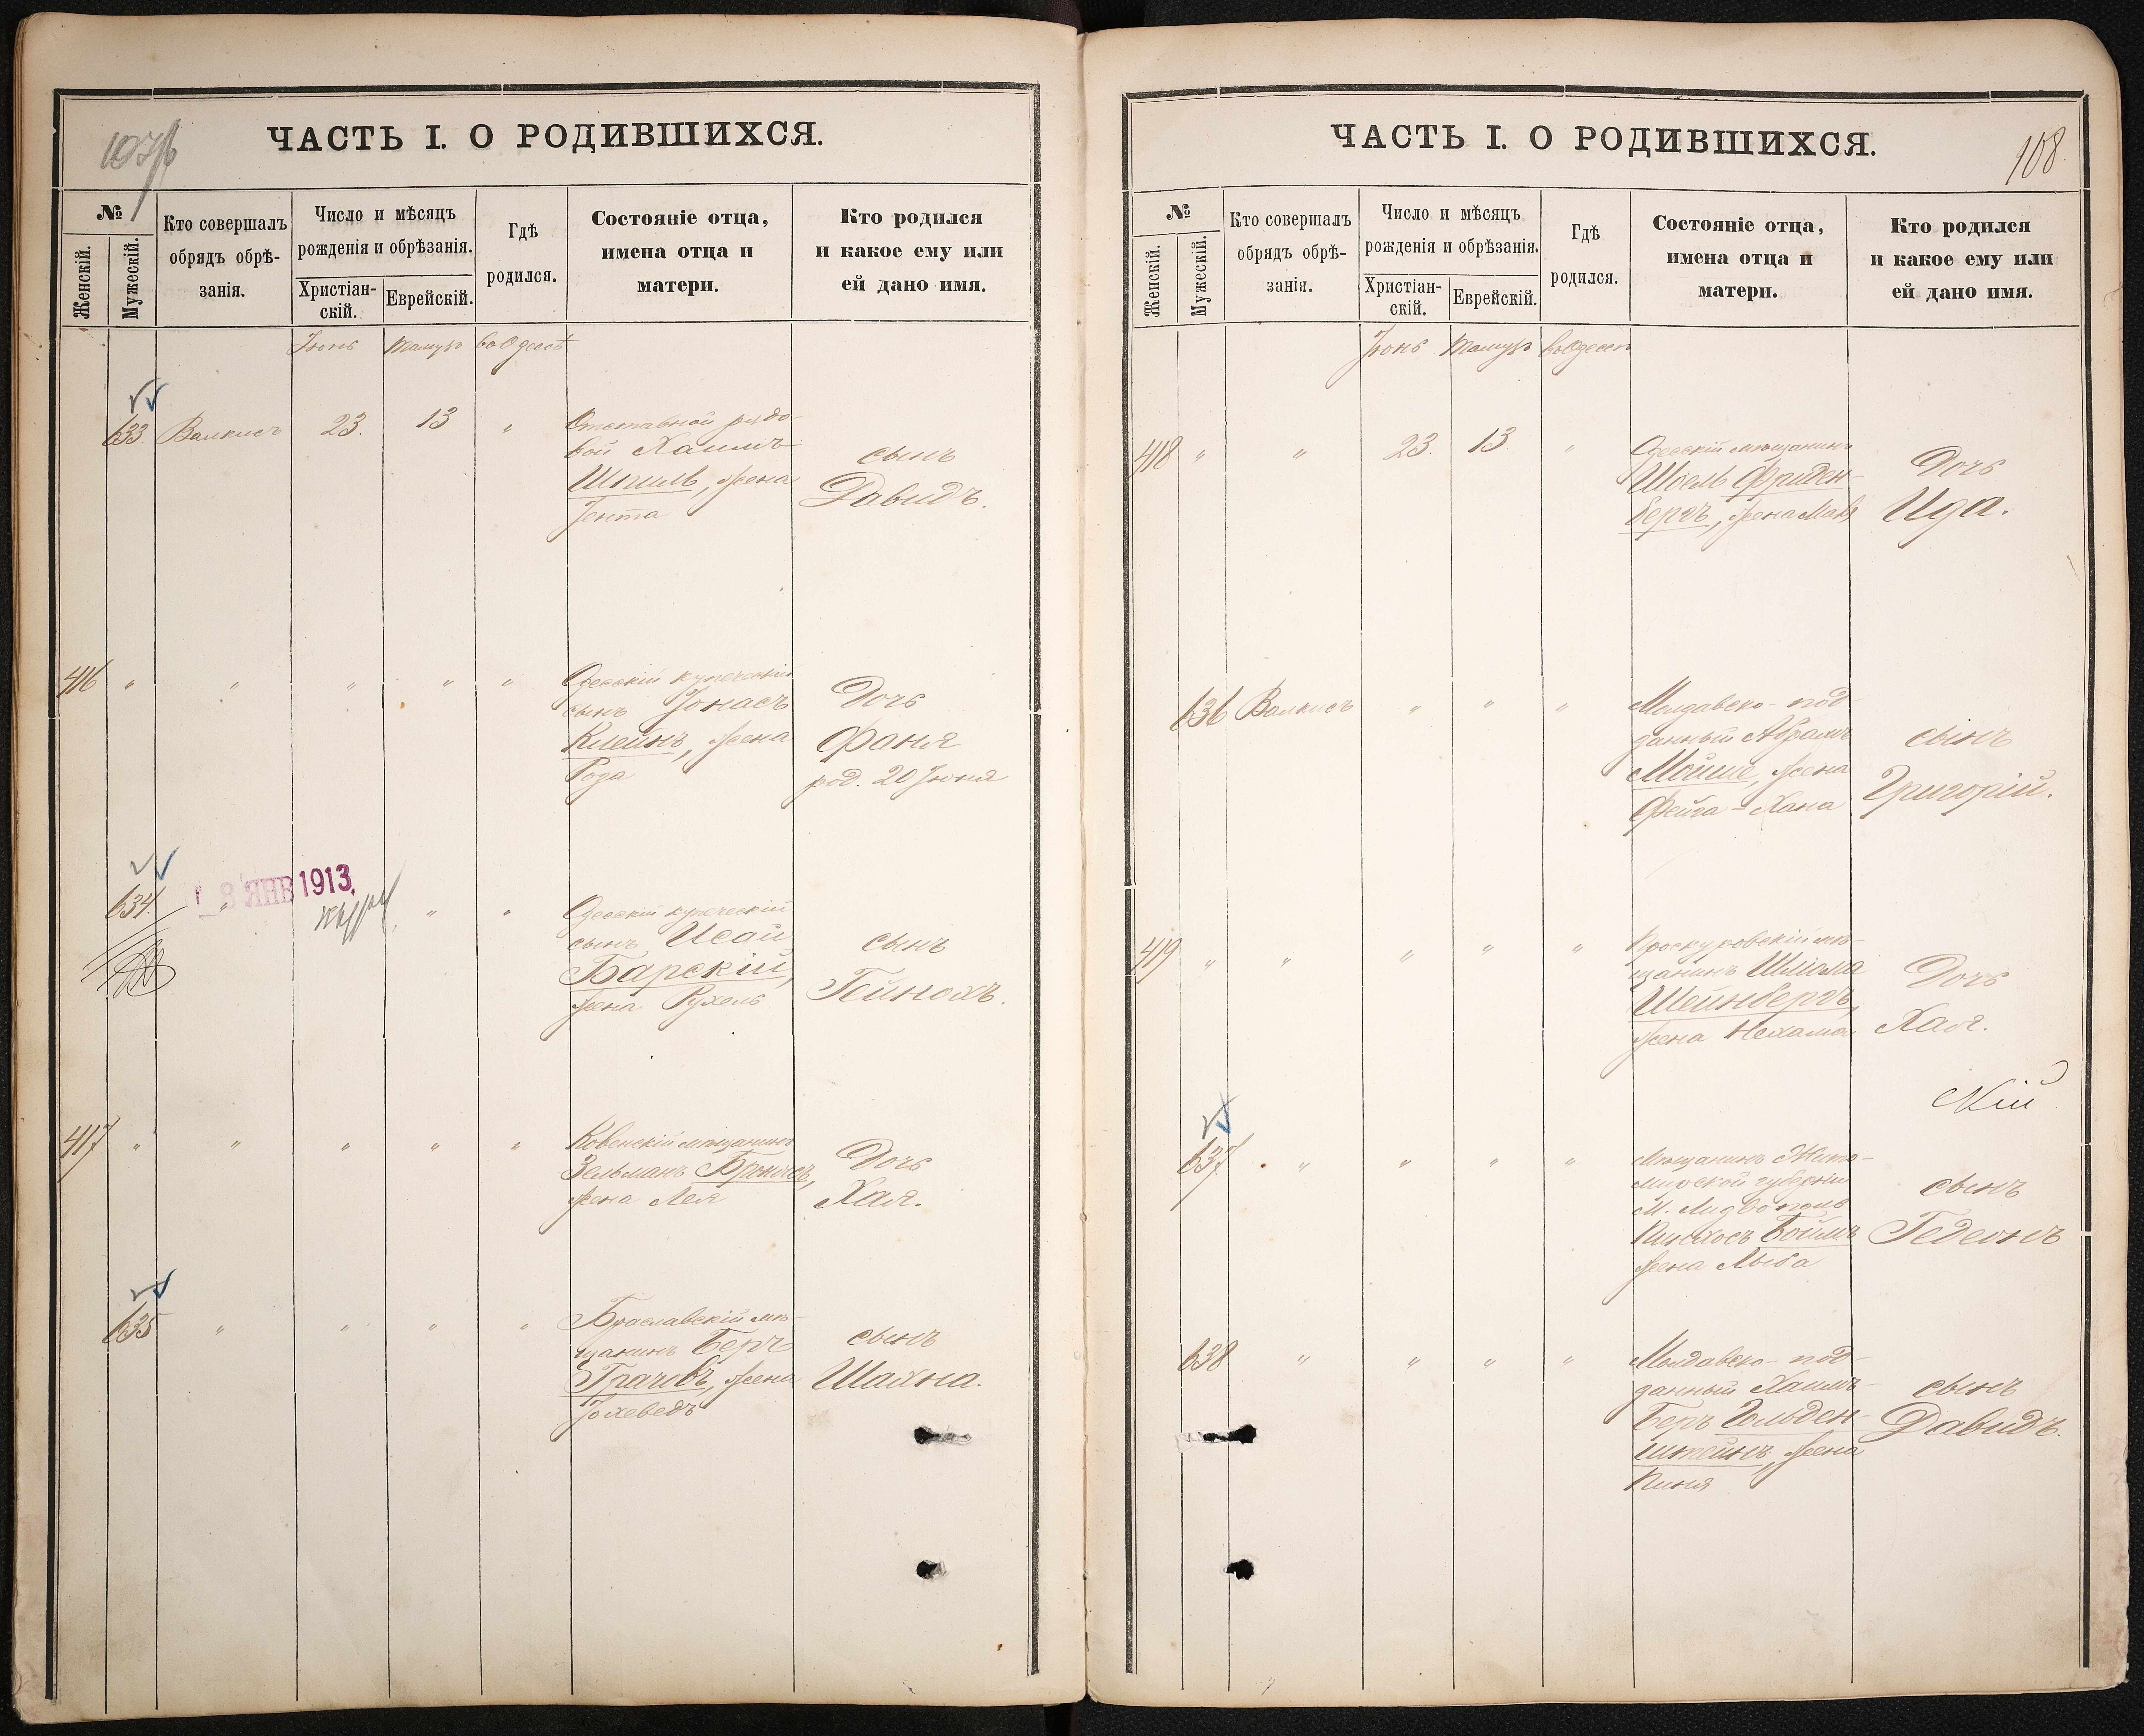 ЧАСТЬ I. О РОДИВШИХСЯ.
№
Женскій.
Мужескій.
Кто совершалъ
обрядъ обрѣ-
занія.
Число и мѣсяцъ
рожденія и обрѣзанія.
Христіан-
скій.
Еврейскій.
Гдѣ
родился.
Состояніе отца,
имена отца и
матери.
Кто родился
и какое ему или
ей дано имя.
Іюнь Тамузъ въ Одессѣ
633. Валкисъ 23. 13 "
Отставной рядо-
вой Хаимъ
Шпиль, жена
Іента
сынъ
Давидъ.
416 " " " " "
Одесскій купеческій
сынъ Іонасъ
Клейнъ, жена
Роза
Дочь
Фаня
род. 20 Іюня
634. " " "
8 ЯНВ 1913
Одесскій купеческій
сынъ Исай
Барскій,
жена Рухель
сынъ
Гейнохъ.
417 " " " " "
Ковенскій мѣщанинъ
Зельманъ
жена Лея
Дочь
Хая.
635 " " " "
Браславскій мѣ-
щанинъ Беръ
Грачовъ, жена
Іохеведъ
сынъ
Шахна.
ЧАСТЬ I. О РОДИВШИХСЯ.
108.
№
Женскій.
Мужескій.
Кто совершалъ
обрядъ обрѣ-
занія.
Число и мѣсяцъ
рожденія и обрѣзанія.
Христіан-
скій.
Еврейскій.
Гдѣ
родился.
Состояніе отца,
имена отца и
матери.
Кто родился
и какое ему или
ей дано имя.
Іюнь Тамузъ въ Одессѣ
418 " " 23. 13. "
Одесскій мѣщанинъ
Шоель Фриден-
бергъ, жена
Дочь
Ида.
636 Валкисъ " " "
Молдавско-под-
данный Абрамъ
Мойше, жена
Фейга-Хана
сынъ
Григорій.
419 " " " " "
Проскуровскій мѣ-
щанинъ Шліома
Шейнбергъ,
жена Нехама
Дочь
Хая.
637. " " " "
Мѣщанинъ Жито-
мирской губерніи
М.
Пинхосъ Боймъ
жена Лыба
сынъ
Гедеонъ
638 " " " "
Молдавско-под-
данный Хаимъ-
Беръ Гольден-
штейнъ, жена
Пиня
сынъ
Давидъ.